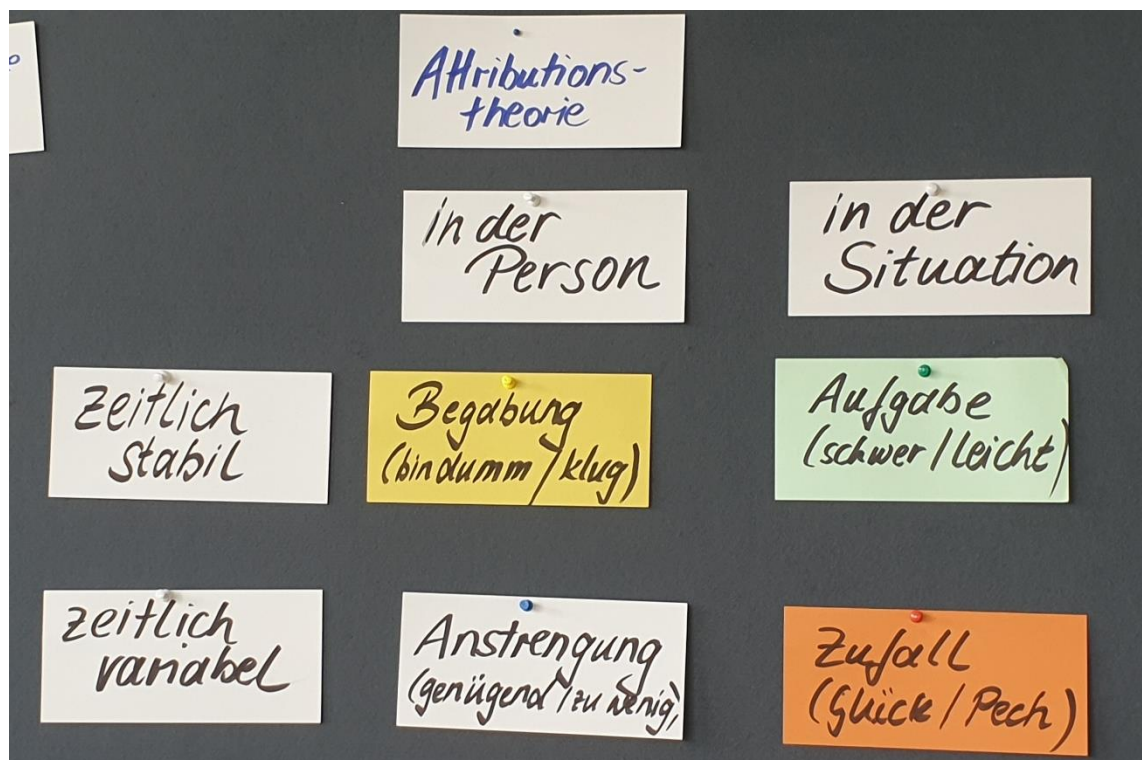 Attributions-
theorie
in der
Person
in der
Situation
zeitlich
stabil
Begabung
(bin dumm / klug)
Aufgabe
(schwer / leicht)
zeitlich
variabel
Anstrengung
(genügend / zu wenig)
Zufall
(Glück / Pech)